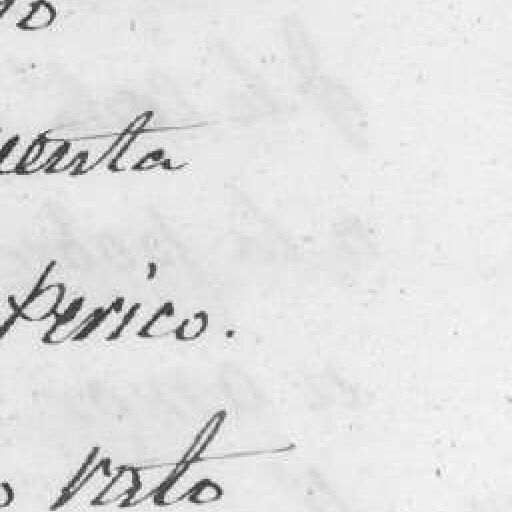 uenta
perico.
o rato